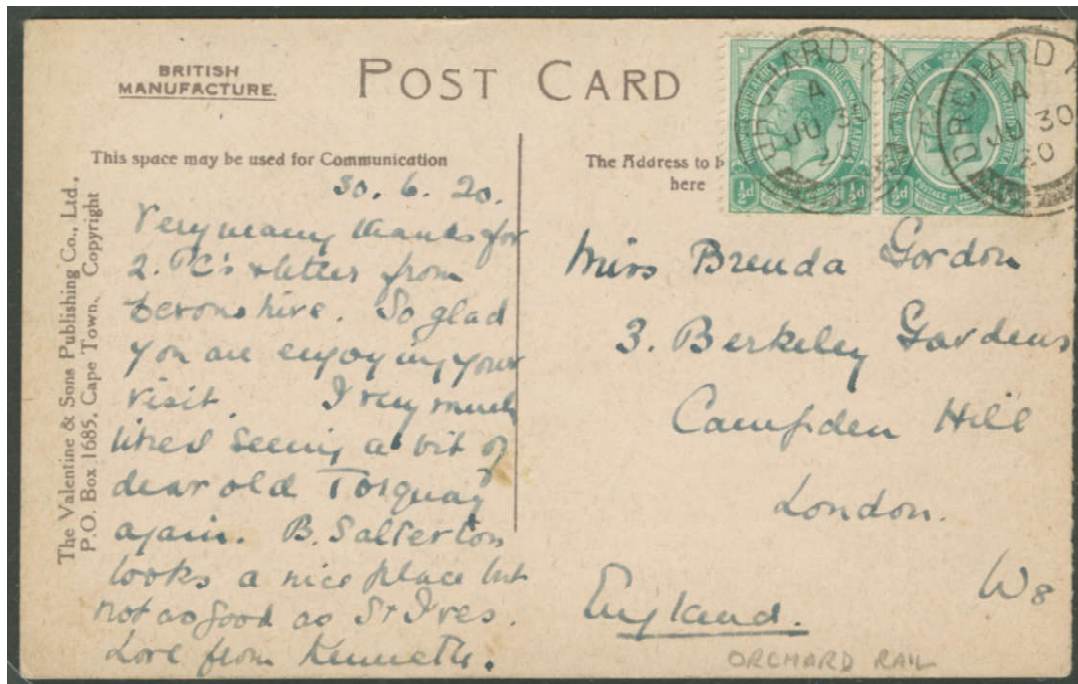 BRITISH
MANUFACTURE.
POST CARD
This space may be used for Communication
The Address to b
here
The Valentine & Sons Publishing Co., Ltd.,
P.O. Box 1685, Cape Town. Copyright
30. 6. 20.
Very many thanks for
2. PC's & letter from
Devonshire. So glad
you are enjoying your
visit. I very much
liked seeing a bit of
dear old Torquay
again. B. Salterton
looks a nice place but
not as good as St Ives.
Love from Kenneth.
½d ½d
½d
ORCHARD RAI
A
JU 30
2
ORCHARD R
A
JU 30
20
Miss Brenda Gordon
3. Berkeley Gardens
Campden Hill
London.
W8
England.
ORCHARD RAIL